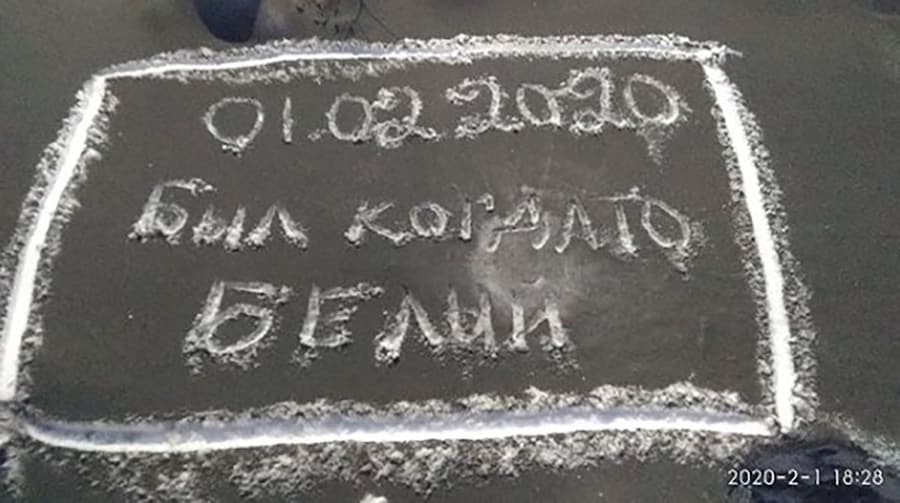 01.02.2020
Был когдато
БЕЛЫЙ
2020-2-1 18:28